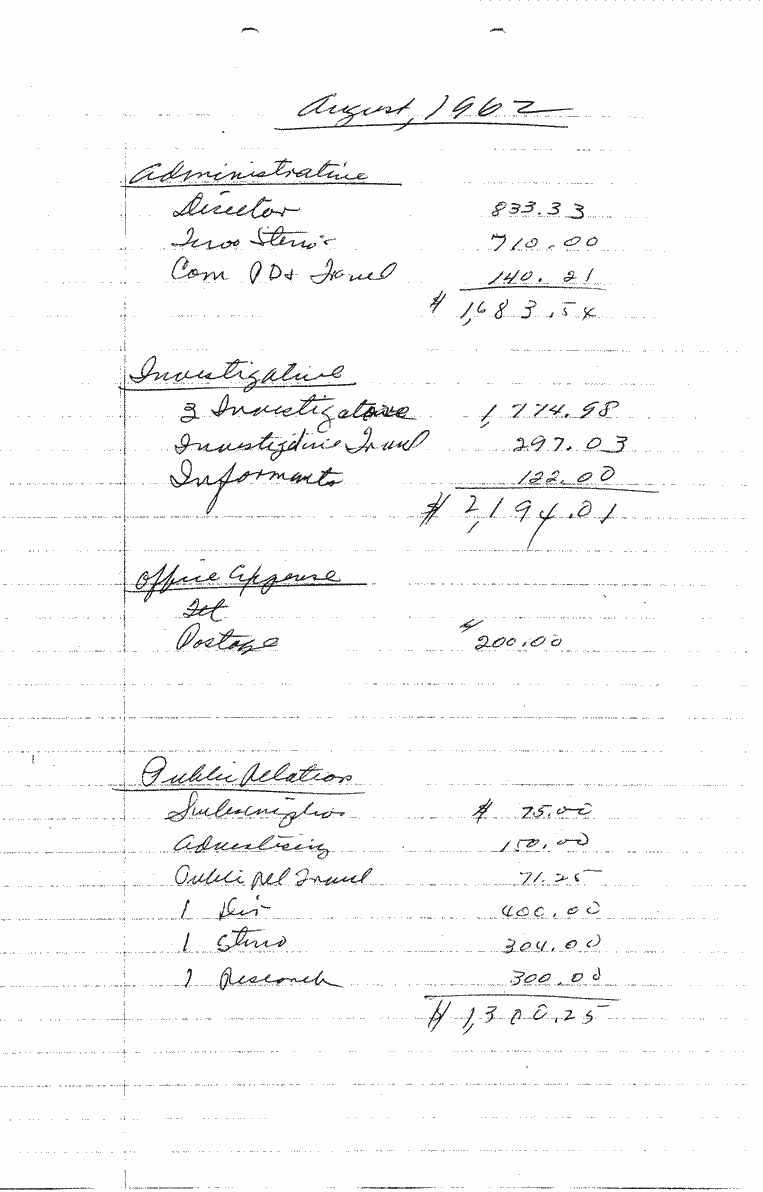 August, 1962
Administrative
Director 833.33
Two Steno 710.00
Com PD & Travel 140.21
$ 1,683.54
Investigative
3 Investigators 1,774.98
Investigative Travel 297.03
Informants 122.00
$ 2,194.01
Office Expense
Postage $ 200.00
Public Relations
Subscription $ 75.00
Advertising 150.00
Public Rel Travel 71.25
1 Dir 400.00
1 Steno 304.00
1 Research 300.00
$ 1,300.25